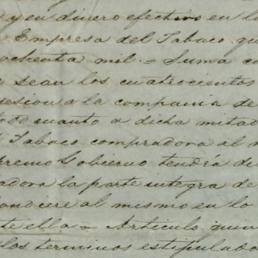 y en dinero efectivo en la
Empresa del Tabaco qu
ochenta mil = Suma c
sean los cuatrocientos
sesion a la compania de
de cuanto a dicha mitad
Tabaco compradora al
premo Gobierno tendrá de
adora la parte integra de
ondiere al mismo en lo
te ella = Articulo
los terminos estipulado